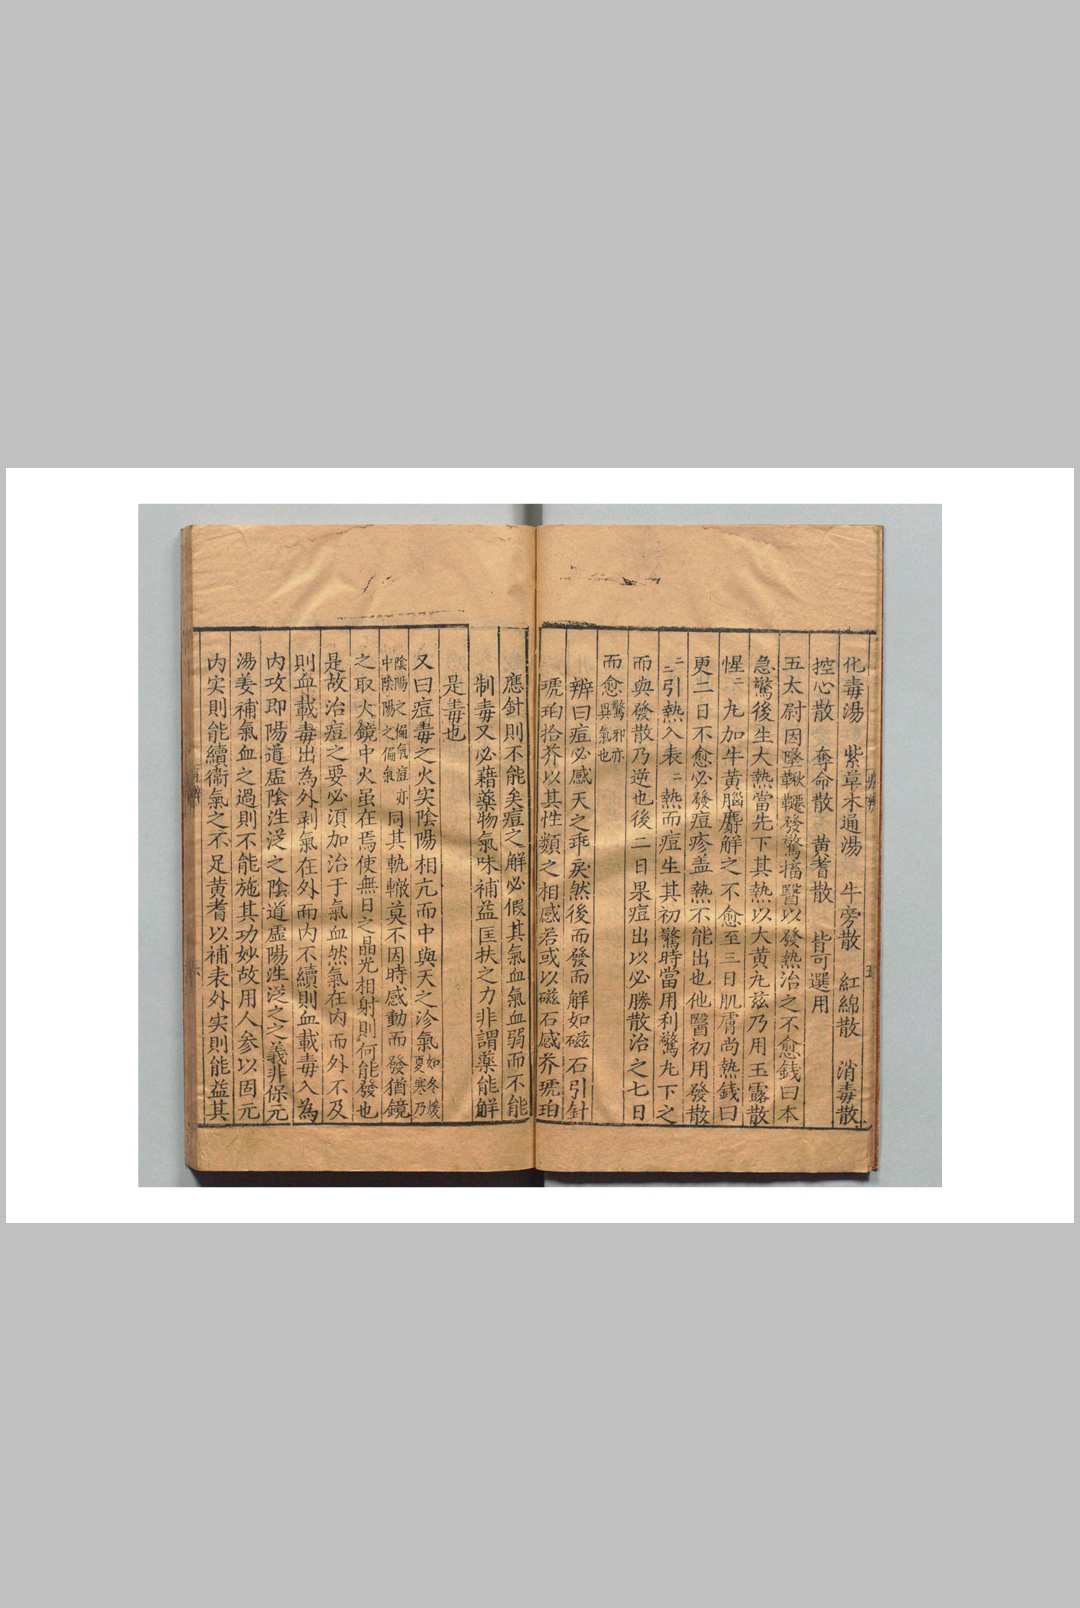 化毒湯 紫草木通湯 牛旁散 紅綿散 消毒散
控心散 奪命散 黄耆散 皆可選用
五太尉因墜鞦韆發驚搐醫以發熱治之不愈錢曰本
急驚後生大熱當先下其熱以大黄九玆乃用玉露散
惺二九加牛黄腦麝解之不愈至三日肌膚尚熱錢曰
更二日不愈必發痘疹盖熱不能出也他醫初用發散
二二引熱入表二熱而痘生其初驚時當用利驚丸下之
而與發散乃逆也後二日果痘出以必勝散治之七日
而愈驚邪亦
異氣也
辨曰痘必感天之乖戾然後而發而解如磁石引針
琥珀拾芥以其性類之相感若或以磁石感芥琥珀
應針則不能矣痘之解必假其氣血氣血弱而不能
制毒又必藉藥物氣味補益匡扶之力非謂藥能解
是毒也
又曰痘毒之火实陰陽相亢而中與天之沴氣如冬煖
夏寒乃
陰陽之偏氣痘亦
中陰陽之偏氣
同其軌轍莫不因時感動而發猶鏡
之取火鏡中火虽在焉使無日之晶光相射則何能發也
是故治痘之要必須加治于氣血然氣在内而外不及
則血載毒出為外剥氣在外而内不續則血載毒入為
内攻即陽道虚陰泩泛之陰道虚陽泩泛之之義非保元
湯姜補氣血之過則不能施其功妙故用人参以固元
内实則能續衞氣之不足黄耆以補表外实則能益其